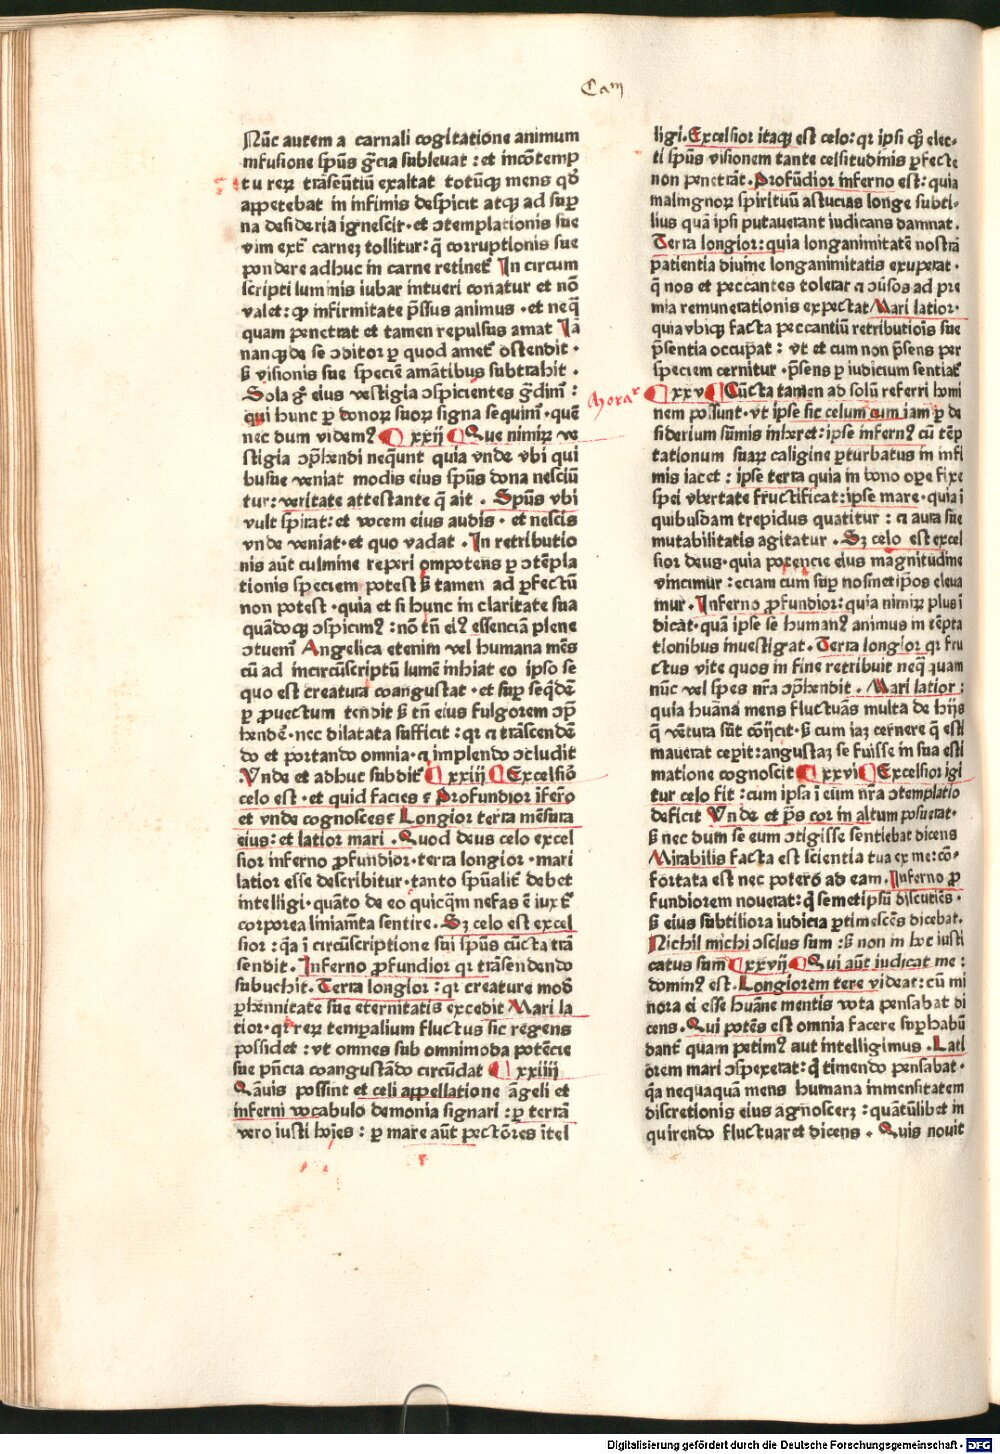 Cam
Nūc autem a carnali cogitatione animum
infusione spūs gr̄cia subleuat : et incōtemp
tu rerꝝ trāseūtiū exaltat totūqꝫ mens qd̄
appetebat in infimis despicit atqꝫ ad suꝑ
na desideria ignescit · et ↄtemplationis sue
vim ext̄ carnez tollitur : q̄ corruptionis sue
pondere adhuc in carne retinet᷑ In circum
scripti luminis iubar intueri conatur et nō
valet : qꝫ infirmitate p̄ssus animus · et neq̄
quam penetrat et tamen repulsus amat Ja
nanqꝫ de se ↄditor ꝑ quod amet᷑ ostendit ·
ß visionis sue speciē amātibus subtrahit .
Sola gͦ eius vestigia ↄspicientes gͣdimꝰ :
qui hunc ꝑ donoꝝ suoꝝ signa sequimꝰ · quē
nec dum videmꝰ xxij Que nimiꝝ ve
stigia ↄp̄hendi neq̄unt quia vnde vbi qui
busue veniat modis eius spūs dona nesciū
tur : veritate attestante q̄ ait . Spūs vbi
vult spirat : et vocem eius audis · et nescis
vnde veniat · et quo vadat . In retributio
nis aūt culmine reperi omp̄otens ꝑ ↄtēpla
tionis speciem potest ß tamen ad ꝑfectū
non potest · quia et si hunc in claritate sua
quādoqꝫ ↄspicimꝰ : nō tn̄ eiꝰ essenciā plene
ↄtuemꝰ Angelica etenim vel humana mēs
cū ad incircūscriptū lumē inhiat eo ipso se
quo est creatura coangustat · et suꝑ seq̄dē
ꝑ ꝓuectum tendit ß tn̄ eius fulgorem ↄp̄
hendē · nec dilatata sufficit : qꝛ ⁊ trāscende̅
do et portando omnia · ⁊ implendo ↄcludit
Vnde et adhuc subdit᷑ xxiij Excelsiō
celo est · et quid facies ? Profundior īferō
et vnde cognosces ? Longior terra mēsura
eius : et latior mari . Quod deus celo excel
sior inferno ꝓfundior · terra longior · mari
latior esse describitur · tanto spūalit᷑ debet
intelligi · quāto de eo quicq̄m nefas ē iuxt᷑
corporea liniamēta sentire . Sꝫ celo est excel
sior : q̄a ī circūscriptione sui spūs cūcta trā
sendit . Inferno ꝓfundior qꝛ trāsendendo
subuehit . Terra longior : qꝛ creature mod̄
ꝑhennitate sue eternitatis excedit Mari la
tior · qꝛ reꝝ temꝑalium fluctus sic regens
possidet : vt omnes sub omnimoda potēcie
sue pn̄cia coangustādo circūdat xxiiij
Q̄auis possint et celi appellatione āgeli et
inferni vocabulo demonia signari : ꝑ terrā
vero iusti hoīes : ꝑ mare aūt peccōres ītel
ligi . Excelsior itaqꝫ est celo : qꝛ ipsi qꝫ elec-
ti spūs visionem tante celsitudinis ꝑfecte
non penetrāt . Profūdior inferno est : quia
malingnoꝝ spirituū astucias longe subti-
lius quā ipsi putauerant iudicans damnat .
Terra longior : quia longanimitatē nostrā
patientia diuine longanimitatis exuperat ·
q̄ nos et peccantes tolerat ⁊ ↄūsos ad pre
mia remunerationis expectat Mari latior ·
quia vbiqꝫ facta peccantiū retributiois sue
p̄sentia occupat : vt et cum non p̄sens per
speciem cernitur · p̄sens ꝑ iudicium sentiat᷑
Morar᷑
xxv Cūcta tamen ad solū referri homi
nem possunt · vt ipse sic celum cum iam ꝑ de
siderium sūmis inheret : ipse infernꝰ cū tēp
tationum suaꝝ caligine ꝑturbatus in infi
mis iacet : ipse terra quia in bono oꝑe fixe
spei vbertate fructificat : ipse mare · quia ī
quibusdam trepidus quatitur : ⁊ aura sue
mutabilitatis agitatur . Sꝫ celo est excel
sior deus · quia potencie eius magnitudine
vincimur : eciam cum suꝑ nosmetip̄os eleua
mur . Inferno ꝓfundior : quia nimiꝝ plus ī
dicat · quā ipse se humanꝰ animus in tēpta
tionibus inuestigat . Terra longior qꝛ fru
ctus vite quos in fine retribuit neq̄ quam
nūc vel spes nr̄a ↄp̄hendit . Mari latior :
quia huāna mens fluctuās multa de hijs
q̄ vētura sūt cōijcit · ß cum iaꝫ cernere q̄ esti
mauerat ceꝑit : angustaꝫ se fuisse in sua esti
matione cognoscit xxvi Excelsior igi
tur celo fit : cum ipsa ī eum nr̄a ↄtemplatio
deficit Vnde et p̄s cor in altum posuerat ·
ß nec dum se eum ↄtigisse sentiebat dicens
Mirabilis facta est scientia tua ex me : cō-
fortata est nec potero ad eam . Inferno ꝓ
fundiorem nouerat : q̄ semetipsū discutiēs ·
ß eius subtiliora iudicia ꝑtimescēs dicebat .
Nichil michi ↄscius sum : ß non in hoc iusti
catus sum xxvij Qui aūt iudicat me :
dominꝰ est . Longiorem tere videat : cū mi
nora ei esse huāne mentis vota pensabat di
cens . Qui potēs est omnia facere suꝑhabū
dant᷑ quam petimꝰ aut intelligimus . Lati
orem mari ↄspexerat : q̄ timendo pensabat ·
q̄a nequaquā mens humana immensitatem
discretionis eius agnosceꝝ : quātūlibet in
quirendo fluctuaret dicens . Quis nouit
Digitalisierung gefördert durch die Deutsche Forschungsgemeinschaft - DFG